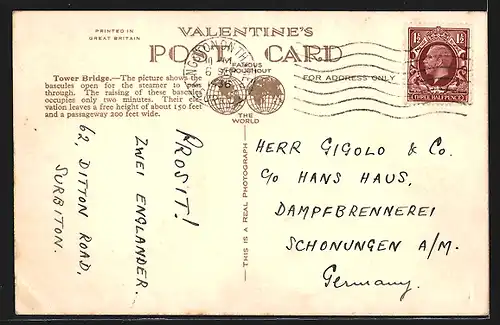 PRINTED IN
GREAT BRITAIN
VALENTINE'S
POST CARD
FAMOUS
THROUGHOUT
THE
WORLD
FOR ADDRESS ONLY
Tower Bridge.—The picture shows the
bascules open for the steamer to pass
through. The raising of these bascules
occupies only two minutes. Their ele-
vation leaves a free height of about 150 feet
and a passageway 200 feet wide.
AM
6
36
1½ 1½
THREE HALFPENCE
THIS IS A REAL PHOTOGRAPH
PROSIT!
ZWEI ENGLANDER.
62, DITTON ROAD,
SURBITON.
HERR GIGOLO & CO.
C/O HANS HAUS,
DAMPFBRENNEREI
SCHONUNGEN A/M.
Germany.